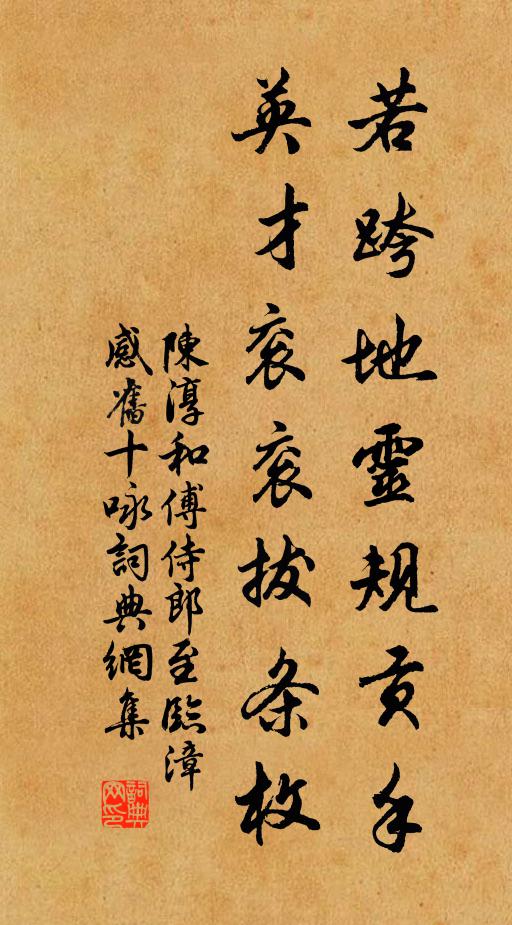 若跨地靈規貢手
英才衮衮拔条枚
陳淳和傅侍郎至臨漳
感舊十咏詞典網集
詞典網印